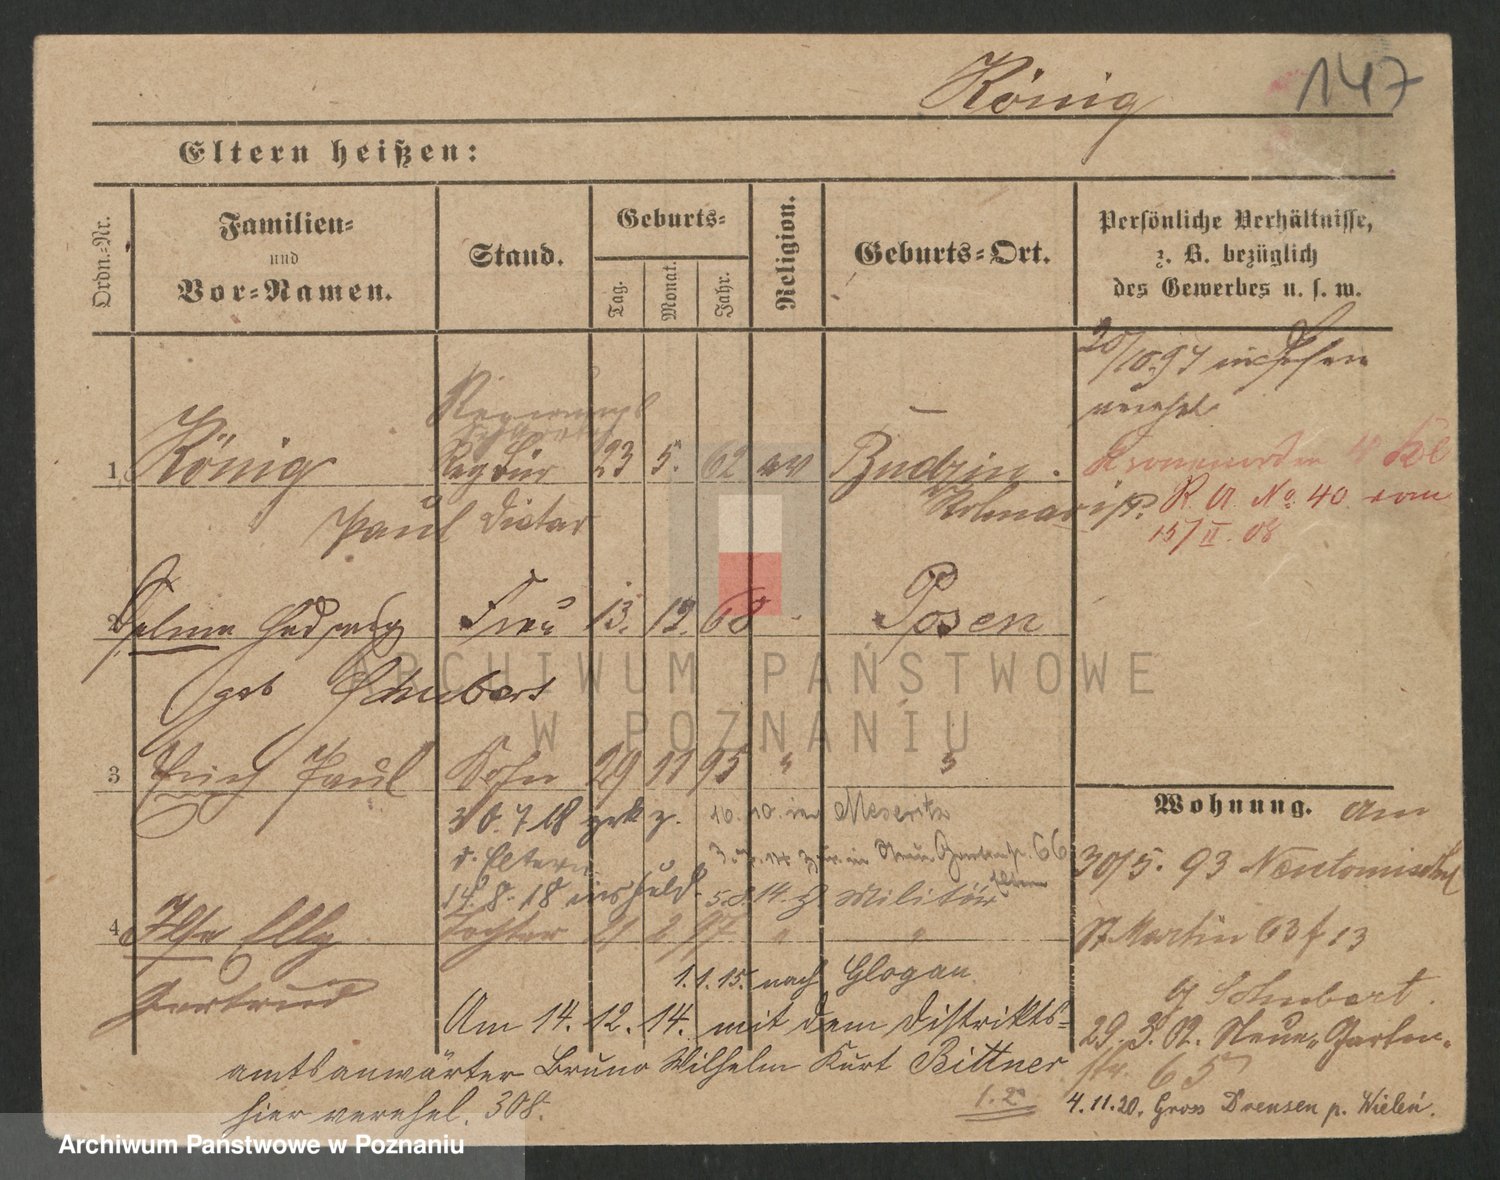 König
147
Eltern heißen:
Ordn.-Nr.
Familien-
und
Vor-Namen.
Stand.
Geburts-
Tag.
Monat.
Jahr.
Religion.
Geburts-Ort.
Persönliche Verhältnisse,
z. B. bezüglich
des Gewerbes u. s. w.
20/10.94 in Posen
verehel.
1 König Reg Bür 23 5. 62 ev Budzin.
Paul Diätar Kolmar i/P.
R. A. No. 40 vom
15/II. 08
2 Selma Hedwig Frau 13. 12. 68 Posen
geb Schubert
3 Erich Paul Sohn 29 11 95 " "
30. 7 18 zrk z. 10. 10. in Meseritz
d. Eltern
14. 8. 18 5.8.14. z Militär
4 Ilse Elly Tochter 21 2 97 " "
Gertrud
1.1.15. nach Glogau.
Am 14. 12. 14. mit dem Distrikts-
amtsanwärter Bruno Wilhelm Kurt Bittner
hier verehel. 308.
Wohnung. am
30/5. 93 Neutomischel
St Martin 63 f 13
b Schubert.
29. 3. 02. Neue Garten-
str. 65
4.11.20. Gross Drensen p. Wieleń.
ARCHIWUM PAŃSTWOWE
W POZNANIU
Archiwum Państwowe w Poznaniu